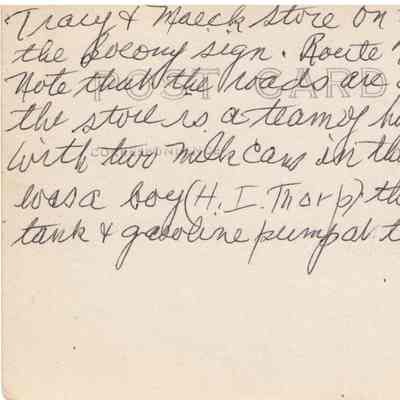 Tracy & Maeck store on
the Socony sign. Route
Note that the roads are
POST CARD
the store is a team of
with two milk cans in the
was a boy (H. I. Thorp) th
tank & gasoline pump at t